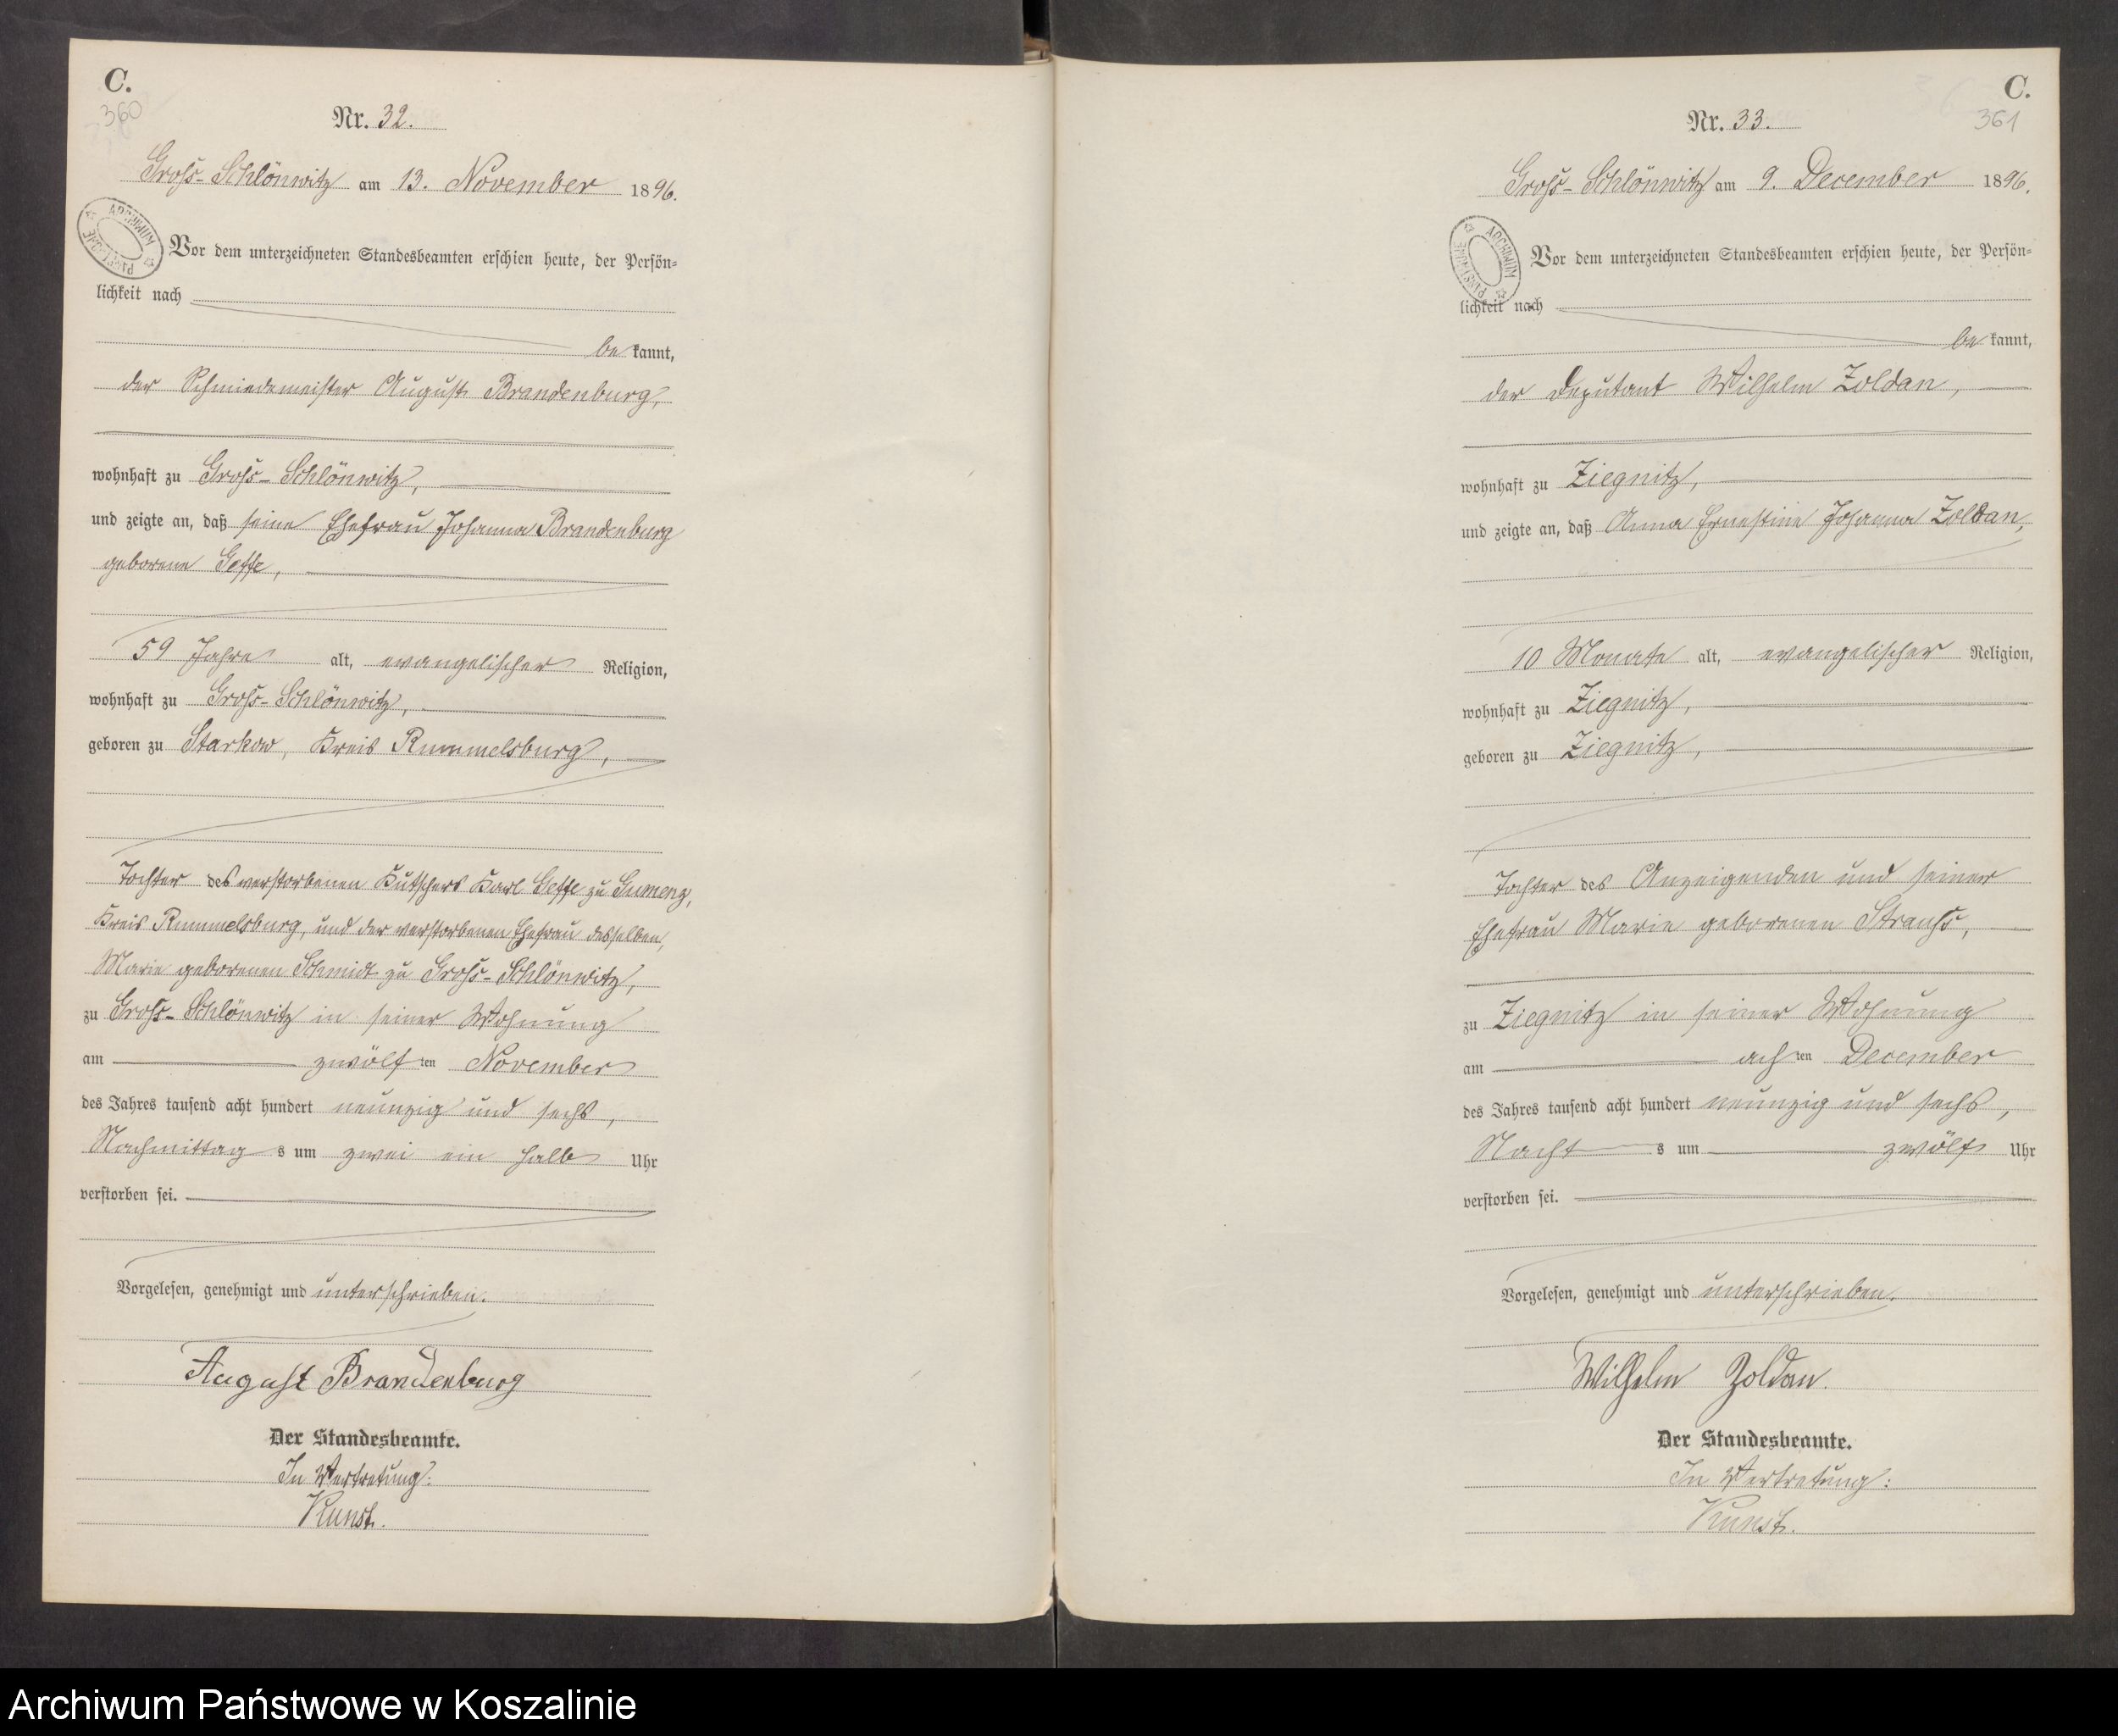 C.
360
Nr. 32.
Groß-Schlönwitz am 13. November 1896.
ARCHIWUM PAŃSTWOWE
Vor dem unterzeichneten Standesbeamten erschien heute, der Persön-
lichkeit nach
be kannt,
der Schmiedemeister August Brandenburg,
wohnhaft zu Groß-Schlönwitz,
und zeigte an, daß seine Ehefrau Johanna Brandenburg
geborene Geffe,
59 Jahre alt, evangelischer Religion,
wohnhaft zu Groß-Schlönwitz,
geboren zu Starkow, Kreis Rummelsburg,
Tochter des verstorbenen Kutschers Karl Geffe zu Gumenz,
Kreis Rummelsburg, und der verstorbenen Ehefrau desselben,
Marie geborenen Schmidt zu Groß-Schlönwitz,
zu Groß-Schlönwitz in seiner Wohnung
am zwölf ten November
des Jahres tausend acht hundert neunzig und sechs,
Nachmittag s um zwei ein halb Uhr
verstorben sei.
Vorgelesen, genehmigt und unterschrieben.
August Brandenburg
Der Standesbeamte.
In Vertretung:
Kunst.
C.
361
Nr. 33.
Groß-Schlönwitz am 9. December 1896.
ARCHIWUM PAŃSTWOWE
Vor dem unterzeichneten Standesbeamten erschien heute, der Persön-
lichkeit nach
be kannt,
der Deputant Wilhelm Zoldan,
wohnhaft zu Ziegnitz,
und zeigte an, daß Anna Ernestine Johanna Zoldan,
10 Monate alt, evangelischer Religion,
wohnhaft zu Ziegnitz,
geboren zu Ziegnitz,
Tochter des Anzeigenden und seiner
Ehefrau Marie geborenen Strauß,
zu Ziegnitz in seiner Wohnung
am ach ten December
des Jahres tausend acht hundert neunzig und sechs,
Nacht s um zwölf Uhr
verstorben sei.
Vorgelesen, genehmigt und unterschrieben.
Wilhelm Zoldan.
Der Standesbeamte.
In Vertretung:
Kunst.
Archiwum Państwowe w Koszalinie